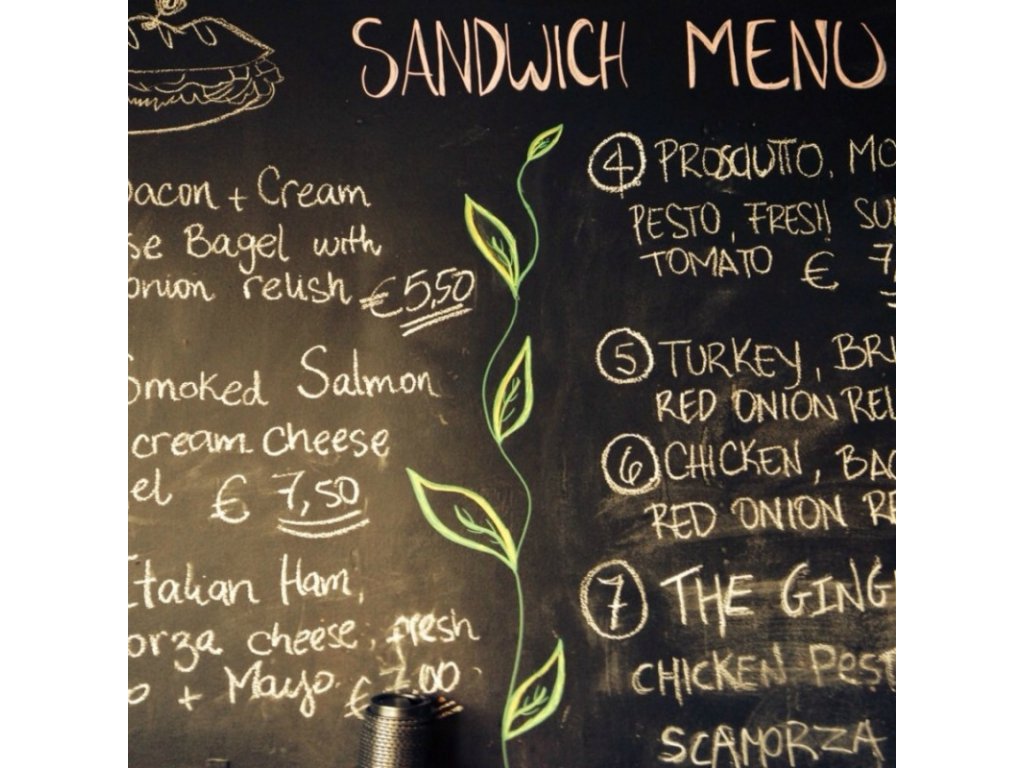 SANDWICH MENU
bacon + Cream
se Bagel with
onion relish €5,50
Smoked Salmon
cream cheese
el € 7,50
Italian Ham,
orza cheese, fresh
o + Mayo. €7.00
4 PROSCIUTTO, MO
PESTO, FRESH SU
TOMATO € 7,
5 TURKEY, BRI
RED ONION REL
6 CHICKEN, BAC
RED ONION RE
7 THE GING
CHICKEN PEST
SCAMORZA